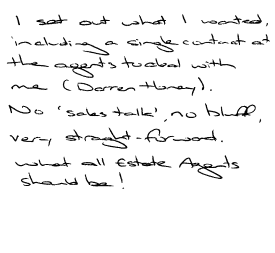 I set out what I wanted,
including a single contact at
the agents to deal with
me (Darren Honey).
No 'sales talk', no bluff,
very straight-forward.
what all Estate Agents
should be!